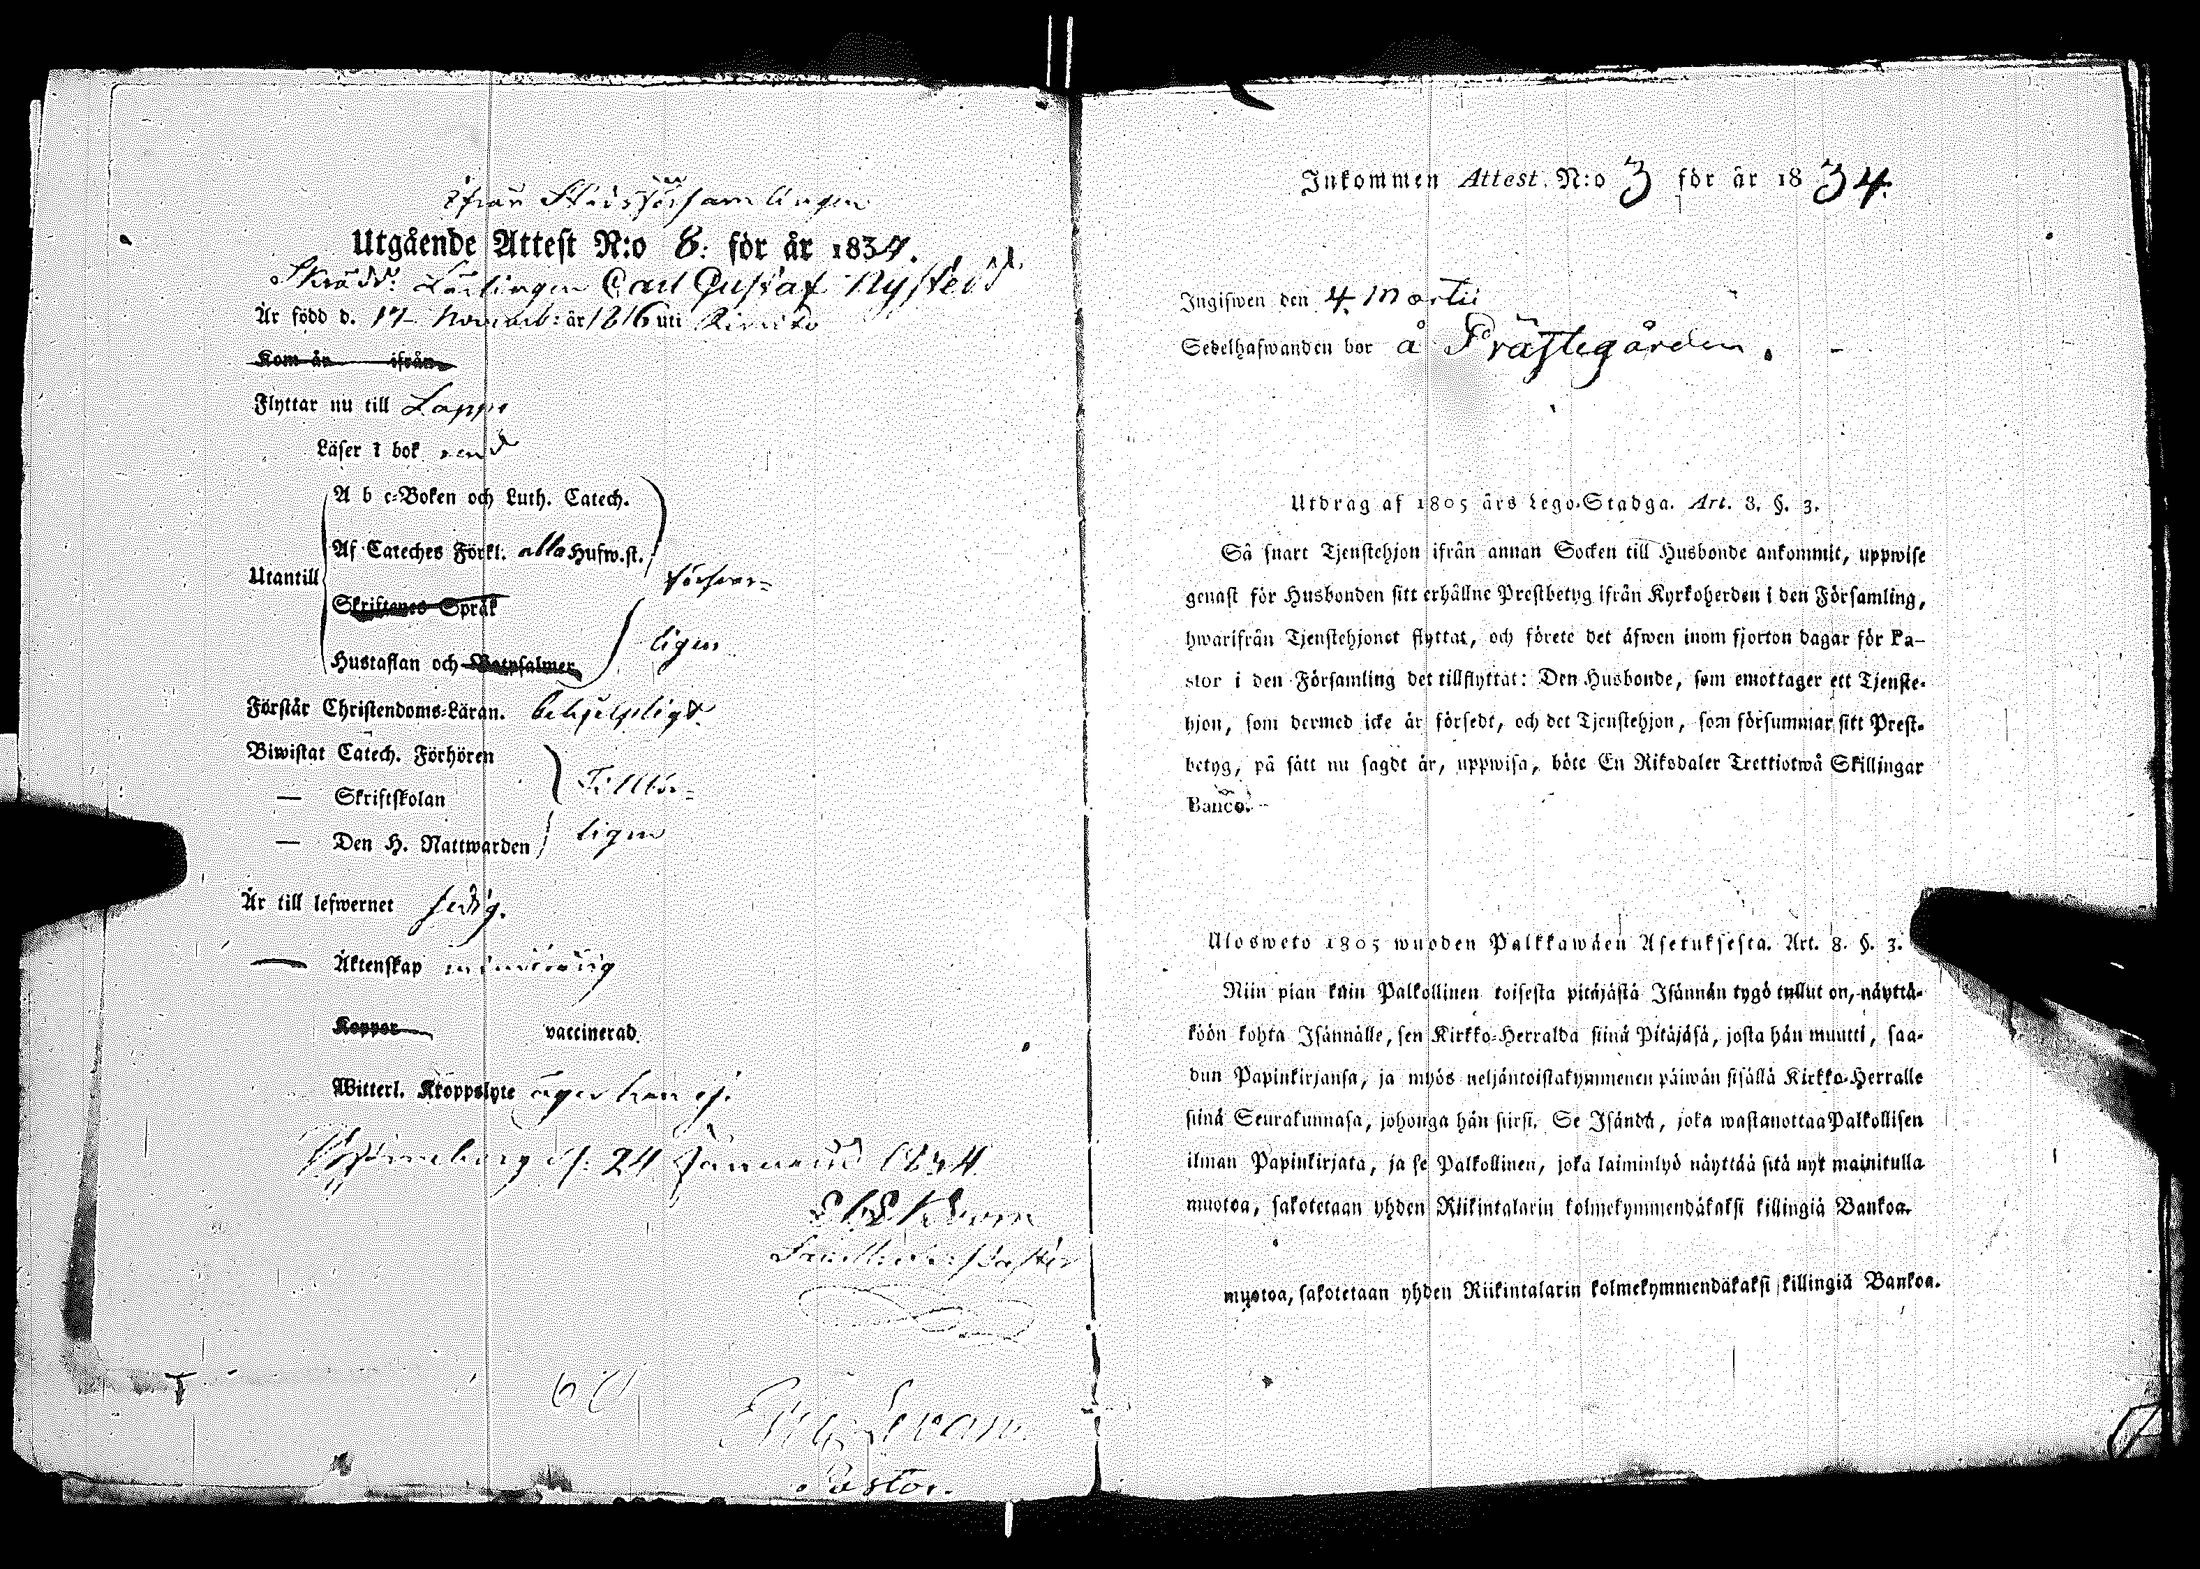 ifrån Stadsförsamlingen
Utgående Attest N:o 8: för år 1834.
Skrädd: Lärlingen Carl Gustaf Nystedt
Är född d. 17 Novemb: år 1816 uti Rimito
Kom år ifrån
Flyttar nu till Lappo
Läser i bok rent
A b c-Boken och Luth. Catech.
Af Cateches Förkl. alla Hufw.st.
Utantill
försvar-
Skriftenes Språk
ligen
Hustaflan och Botpsalmer
Förstår Christendoms-Läran. behjelpligt
Biwistat Catech. Förhören
— Skriftskolan
— Den H. Nattwarden
ligen
Är till lefwernet sedig.
— Äktenskap minderårig
Koppor vaccinerad.
Witterl. Kroppslyte äger han ej.
d. 24 Januarii 1834.
60
Pastor.
Inkommen Attest. N:o 3 för år 1834.
Ingifwen den 4 Martii
Sedelhafwanden bor å Prästegården.
Utdrag af 1805 års Lego-Stadga. Art. 8. §. 3.
Så snart Tjenstehjon ifrån annan Socken till Husbonde ankommit, uppwise
genast för Husbonden sitt erhållne Prestbetyg ifrån Kyrkoherden i den Församling,
hwarifrån Tjenstehjonet flyttat, och förete det äfwen inom fjorton dagar för Pa-
stor i den Församling det tillflyttat: Den Husbonde, som emottager ett Tjenste-
hjon, som dermed icke är försedt, och det Tjenstehjon, som försummar sitt Prest-
betyg, på sätt nu sagdt är, uppwisa, böte En Riksdaler Trettiotwå Skillingar
Banco.
Ulosweto 1805 wuoden Palkkawäen Asetuksesta. Art. 8. §. 3.
Niin pian kuin Palkollinen toisesta pitäjästä Isännän tygö tullut on, näyttä-
köön kohta Isännälle, sen Kirkko-Herralda siinä Pitäjäsä, josta hän muutti, saa-
dun Papinkirjansa, ja myös neljäntoistakymmenen päiwän sisällä Kirkko-Herralle
siinä Seurakunnasa, johonga hän siirsi. Se Isändä, joka wastanottaa Palkollisen
ilman Papinkirjata, ja se Palkollinen, joka laiminlyö näyttää sitä nyt mainitulla
muotoa, sakotetaan yhden Riikintalarin kolmekymmendäkaksi killingiä Bankoa.
muotoa, sakotetaan yhden Riikintalarin kolmekymmendäkaksi killingiä Bankoa.